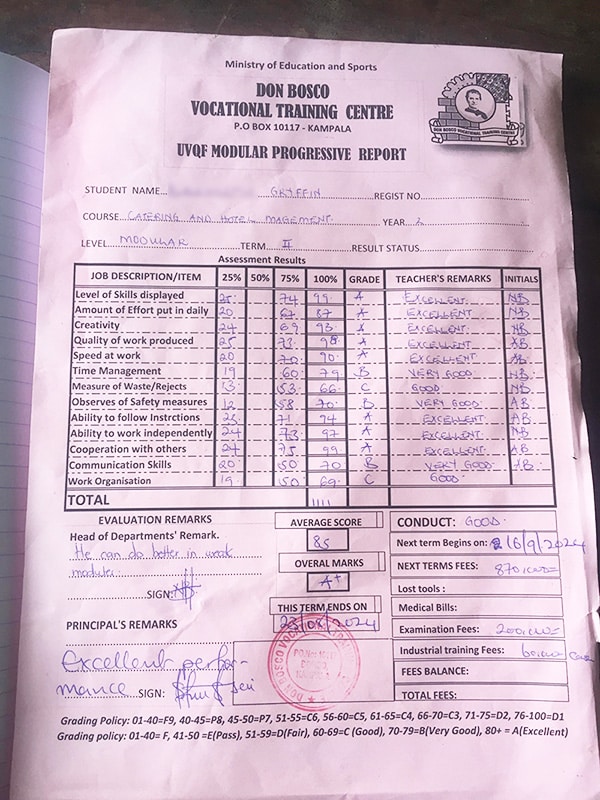 Ministry of Education and Sports
DON BOSCO
VOCATIONAL TRAINING CENTRE
P.O BOX 10117 - KAMPALA
DON BOSCO VOCATIONAL TRAINING CENTRE
UVQF MODULAR PROGRESSIVE REPORT
STUDENT NAME... GRYFFIN ...REGIST NO...
COURSE... CATERING AND HOTEL MAGEMENT YEAR 2
LEVEL... MODULAR ...TERM II ...RESULT STATUS...
Assessment Results
JOB DESCRIPTION/ITEM 25% 50% 75% 100% GRADE TEACHER'S REMARKS INITIALS
Level of Skills displayed 25 74 99 A EXCELLENT NB
Amount of Effort put in daily 20 67 87 A EXCELLENT NB
Creativity 24 69 93 A EXCELLENT NB
Quality of work produced 25 73 98 A EXCELLENT AB
Speed at work 20 70 90 A EXCELLENT AB
Time Management 19 60 79 B VERY GOOD NB
Measure of Waste/Rejects 13 53 66 C GOOD NB
Observes of Safety measures 12 58 70 B VERY GOOD AB
Ability to follow Instrctions 71 94 A EXCELLENT AB
Ability to work independently 24 73 97 A EXCELLENT NB
Cooperation with others 24 75 99 A EXCELLENT AB
Communication Skills 20 50 70 B VERY GOOD AB
Work Organisation 19 50 69 C GOOD
TOTAL 1111
EVALUATION REMARKS
Head of Departments' Remark.
He can do better in weak
module.
SIGN:
PRINCIPAL'S REMARKS
Excellent perfor-
mance SIGN:
AVERAGE SCORE
85
OVERAL MARKS
A+
THIS TERM ENDS ON
23/08/2024
DON BOSCO VOCATIONAL TRAINING
CONDUCT: GOOD
Next term Begins on: 16/9/2024
NEXT TERMS FEES: 870,000=
Lost tools :
Medical Bills:
Examination Fees: 200,000=
Industrial training Fees:
FEES BALANCE:
TOTAL FEES:
Grading Policy: 01-40=F9, 40-45=P8, 45-50=P7, 51-55=C6, 56-60=C5, 61-65=C4, 66-70=C3, 71-75=D2, 76-100=D1
Grading policy: 01-40= F, 41-50 =E(Pass), 51-59=D(Fair), 60-69=C (Good), 70-79=B(Very Good), 80+ = A(Excellent)